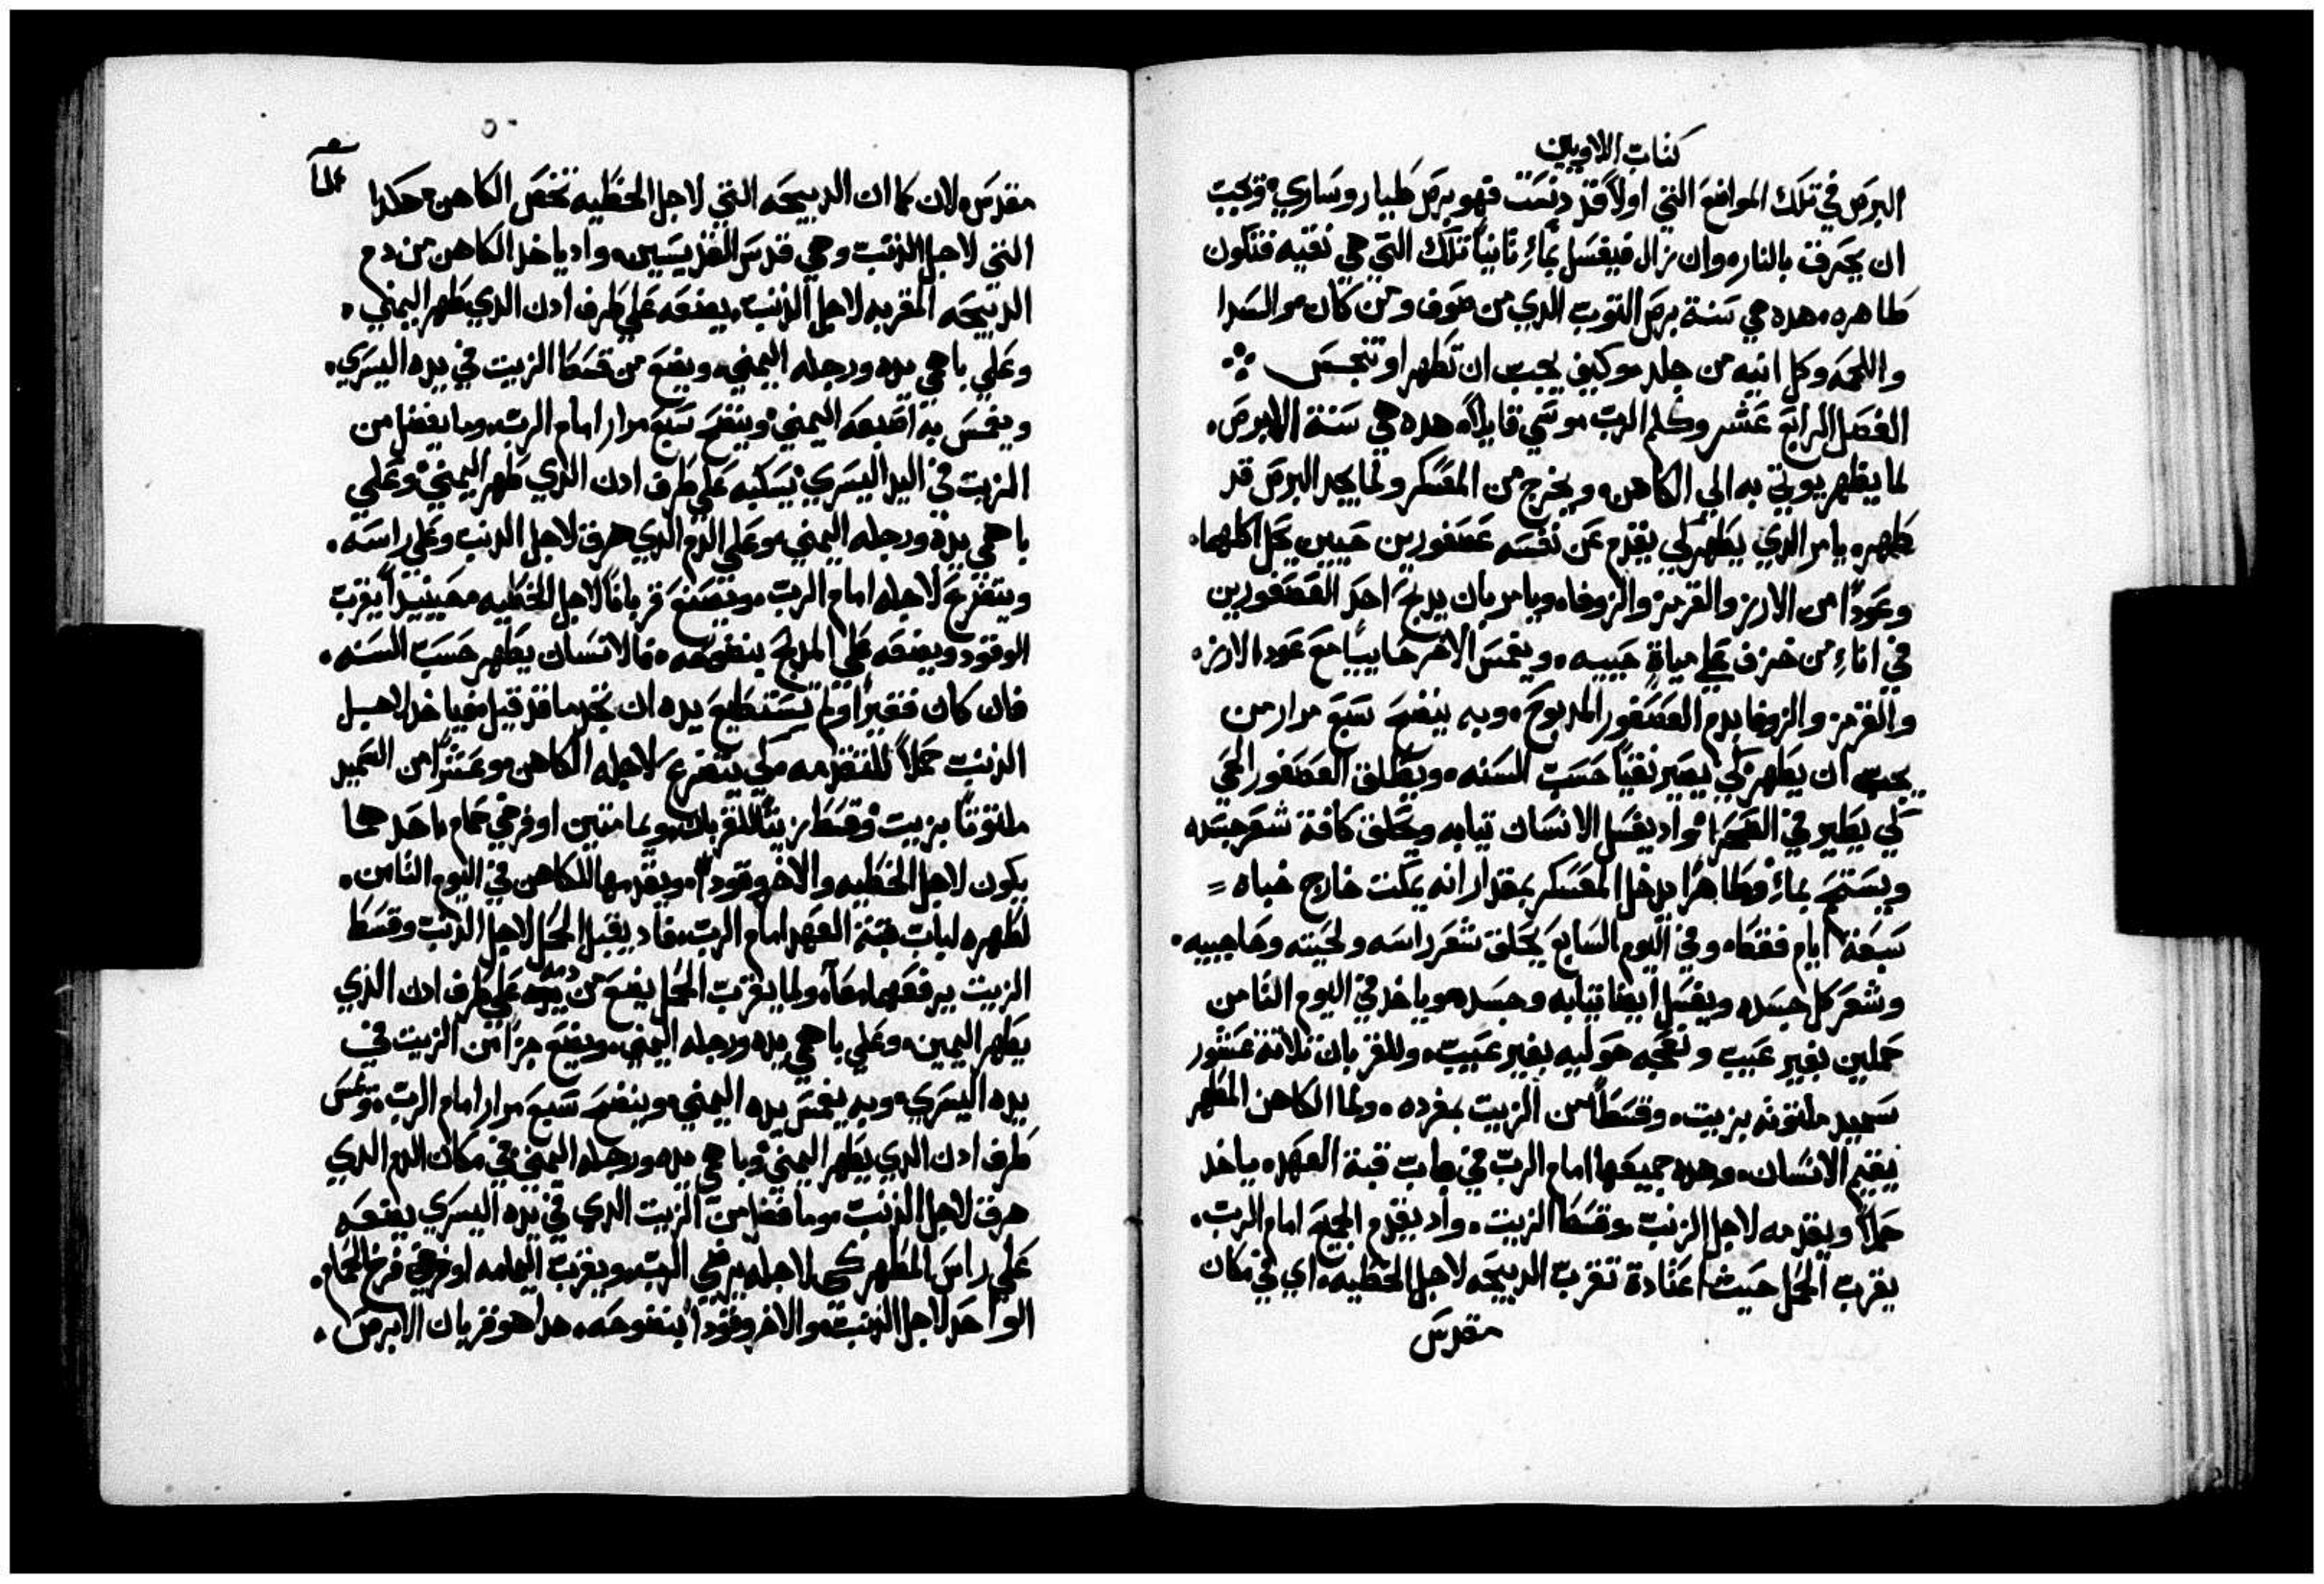 كتاب اللاويين
البرص في تلك المواضع التي اولاً قد دنست فهو برص طيار وساري، ويجب
ان يحرق بالنار، وان زال فيغسل بماءٍ ثانياً تلك التي هي نقيه فتكون
طاهره، هذه هي سنة برص التوب الدي من صوف ومن كتان، والسدا
واللحمه وكل انيه من جلد، وكيف يجب ان تطهر او تنجس
الفصل الرابع عشر وكلم الرب موسي قايلاً، هده هي سنة الابرص،
لما يظهر يوتي به الي الكاهن، ويخرج من المعسكر ولما يجد البرص قد
طهر، يامر الدي يطهر لكي يقدم عن نفسه عصفورين حيين يحل اكلهما،
وعوداً من الارز والقرمز والزوفا، ويامر بان يدبح احد العصفورين
في اناءٍ من خزف علي مياةٍ حييه، ويغمس الاخر حايياً مع عود الارز،
والقرمز والزوفا بدم العصفور المدبوح، وبه ينضح سبع مرار من
يجب ان يطهر لكي يصير نقياً حسب السنه، ويطلق العصفور الحي
لكي يطير في الصحرا، واد يغسل الانسان تيابه ويحلق كافة شعر جسده
ويستحم بماءٍ، وطاهراً يدخل المعسكر بمقدار انه يمكت خارج خباه =
سبعة ايام فقط، وفي اليوم السابع يحلق شعر راسه ولحيته وحاجبيه،
وشعر كل جسده ويغسل ايضا تيابه وجسده، وياخد في اليوم التامن
حملين بغير عيب ونعجه حوليه بغير عيب، وللقربان تلاتة عشور
سميد ملتوته بزيت، وقسطاً من الزيت بمفرده، ولما الكاهن المطهر
يقيم الانسان، وهده جميعها امام الرب في باب قبة العهد، ياخد
حملاً ويقدمه لاجل الدنب، وقسط الزيت، واد يقدم الجميع امام الرب،
يقرب الحمل حيث اعتادة تقرب الدبيحه لاجل الخطيه، اي في مكان
مقدس
مقدس، لان كما ان الدبيحه التي لاجل الخطيه تخص الكاهن هكدا
التي لاجل الدنب وهي قدس القديسين، واد ياخد الكاهن من دم
الدبيحه المقربه لاجل الدنب، يضعه علي طرف ادن الدي يطهر اليمني،
وعلي باهمي يده ورجله اليمني، ويضع من قسط الزيت في يده اليسري،
ويغمس به اصبعه اليمني، وينضح سبع مرار امام الرب، وما يفضل من
الزيت في اليد اليسري يسكبه علي طرف ادن الدي يطهر اليمني، وعلي
باهمي يده ورجله اليمني، وعلي الدم الدي هرق لاجل الدنب وعلي راسه،
ويتضرع لاجله امام الرب، ويصنع قرباناً لاجل الخطيه، حينيدٍ يقرب
الوقود ويضعه علي المدبح بنضوحه، فالانسان يطهر حسب السنه،
فان كان فقيراً ولم تستطيع يده ان تجد ما قد قيل، فياخد لاجل
الدنب حملاً للتقدمه لكي يتضرع لاجله الكاهن، وعشراً من السميد
ملتوتاً بزيت، وقسط زيتاً للقربان، ويمامتين او فرخي حمام، احدهما
يكون لاجل الخطيه والاخر وقوداً، ويقدمها للكاهن في اليوم التامن،
لطهره لباب قبة العهد امام الرب، فاد يقبل الحمل لاجل الدنب وقسط
الزيت يرفعهما معاً، ولما يقرب الحمل يضع من دمه علي طرف ادن الذي
يطهر اليمين، وعلي باهمي يده ورجله اليمني، ويضع جزاً من الزيت في
يده اليسري، وبه يغمس يده اليمني، وينضح سبع مرار امام الرب، ويمس
طرف ادن الدي يطهر اليمني، وباهمي يده ورجله اليمني، في مكان الدم الدي
هرق لاجل الدنب، وما فضل من الزيت الدي في يده اليسري يضعه
علي راس المطهر كي لاجله يرضي الرب، ويقرب اليمامه او فرخي فرخ الحمام،
الواحد لاجل الدنب، والاخر وقوداً بنضوحه، هدا هو قربان الابرص،